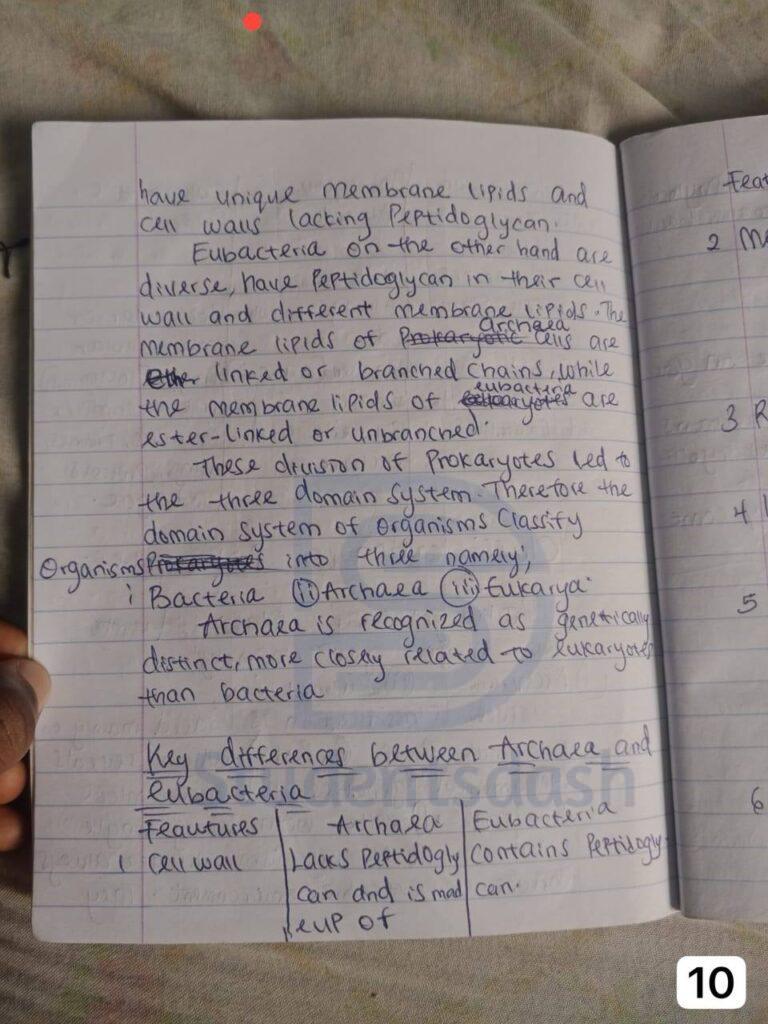 have unique membrane lipids and
cell walls lacking Peptidoglycan.
Eubacteria on the other hand are
diverse, have Peptidoglycan in their cell
wall and different membrane lipids. The
membrane lipids of Prokaryotic archaea cells are
Ether linked or branched chains, while
the membrane lipids of eubacteria are
ester-linked or unbranched.
These division of Prokaryotes led to
the three domain system. Therefore the
domain system of Organisms Classify
Organisms Prokaryotes into three namely;
i Bacteria (ii) Archaea (iii) Eukarya.
Archaea is recognized as genetically
distinct, more closely related to eukaryotes
than bacteria
Key differences between Archaea and
eubacteria
Feautures Archaea Eubacteria
1 Cell wall Lacks Peptidogly Contains Peptidogly
can and is mad can.
eup of
Feat
2 Me
3 R
4
5
6
Studentsdash
10